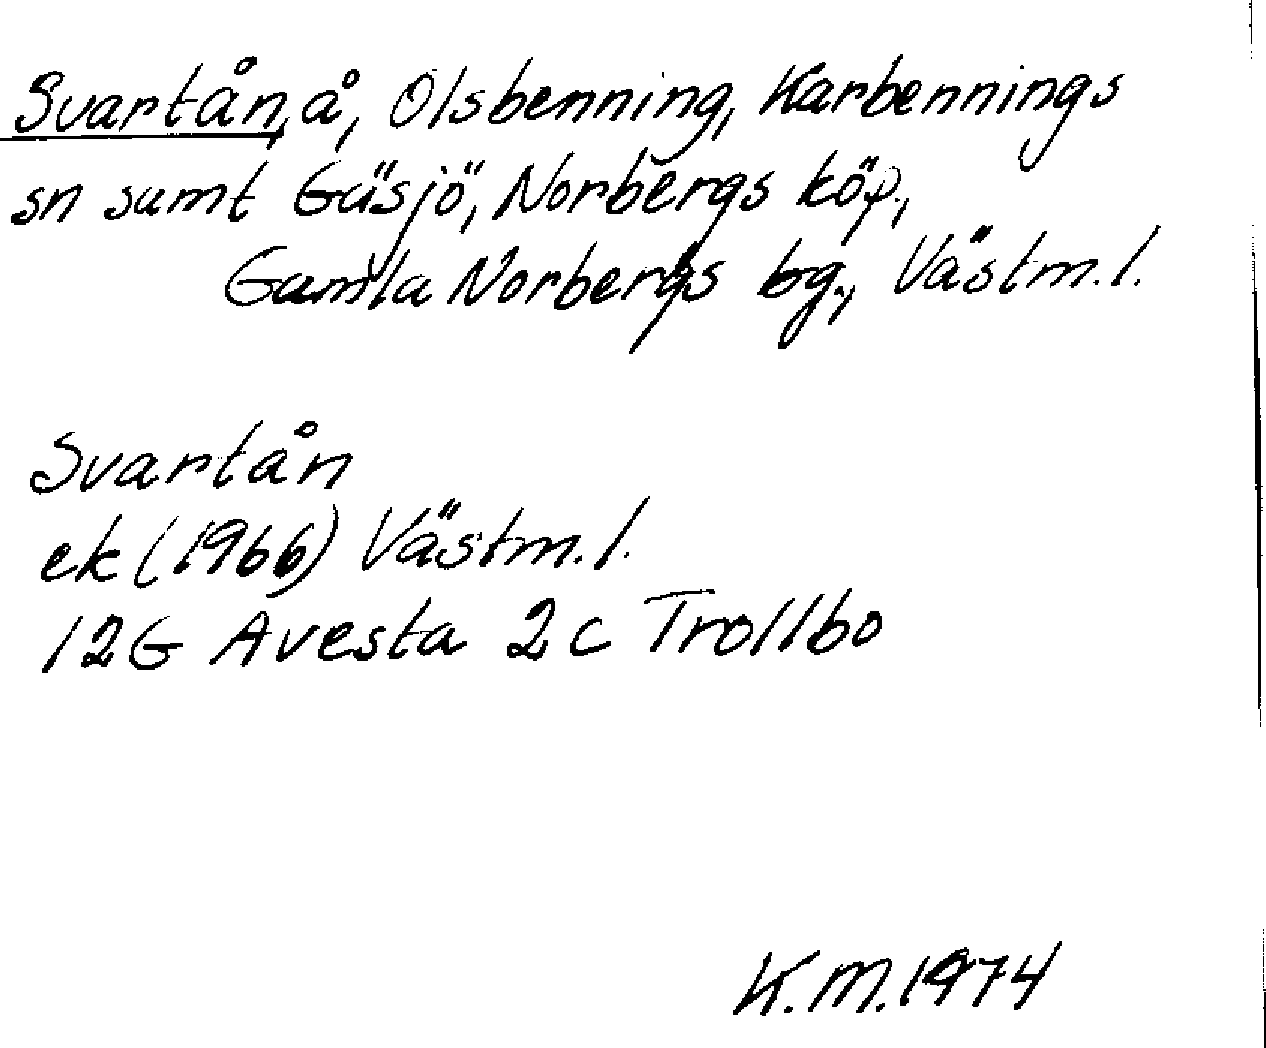 Svartån, å, Olsbenning, Karbennings
sn samt Gäsjö, Norbergs köp.,
Gamla Norbergs bg., Västm. l.
Svartån
ek (1966) Västm. l.
12G Avesta 2c Trollbo
K.M. 1974